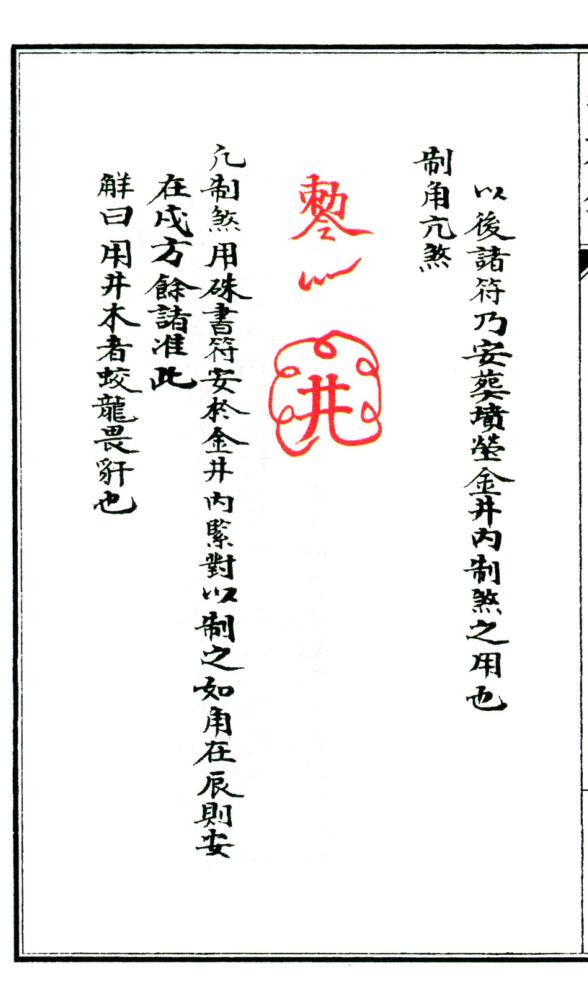 以後諸符乃安葬墳塋金井内制煞之用也
制角亢煞
勅令
井
凡制煞用硃書符安於金井内緊對以制之如角在辰則安
在戌方餘諸准此
觧曰用井木者蛟龍畏犴也